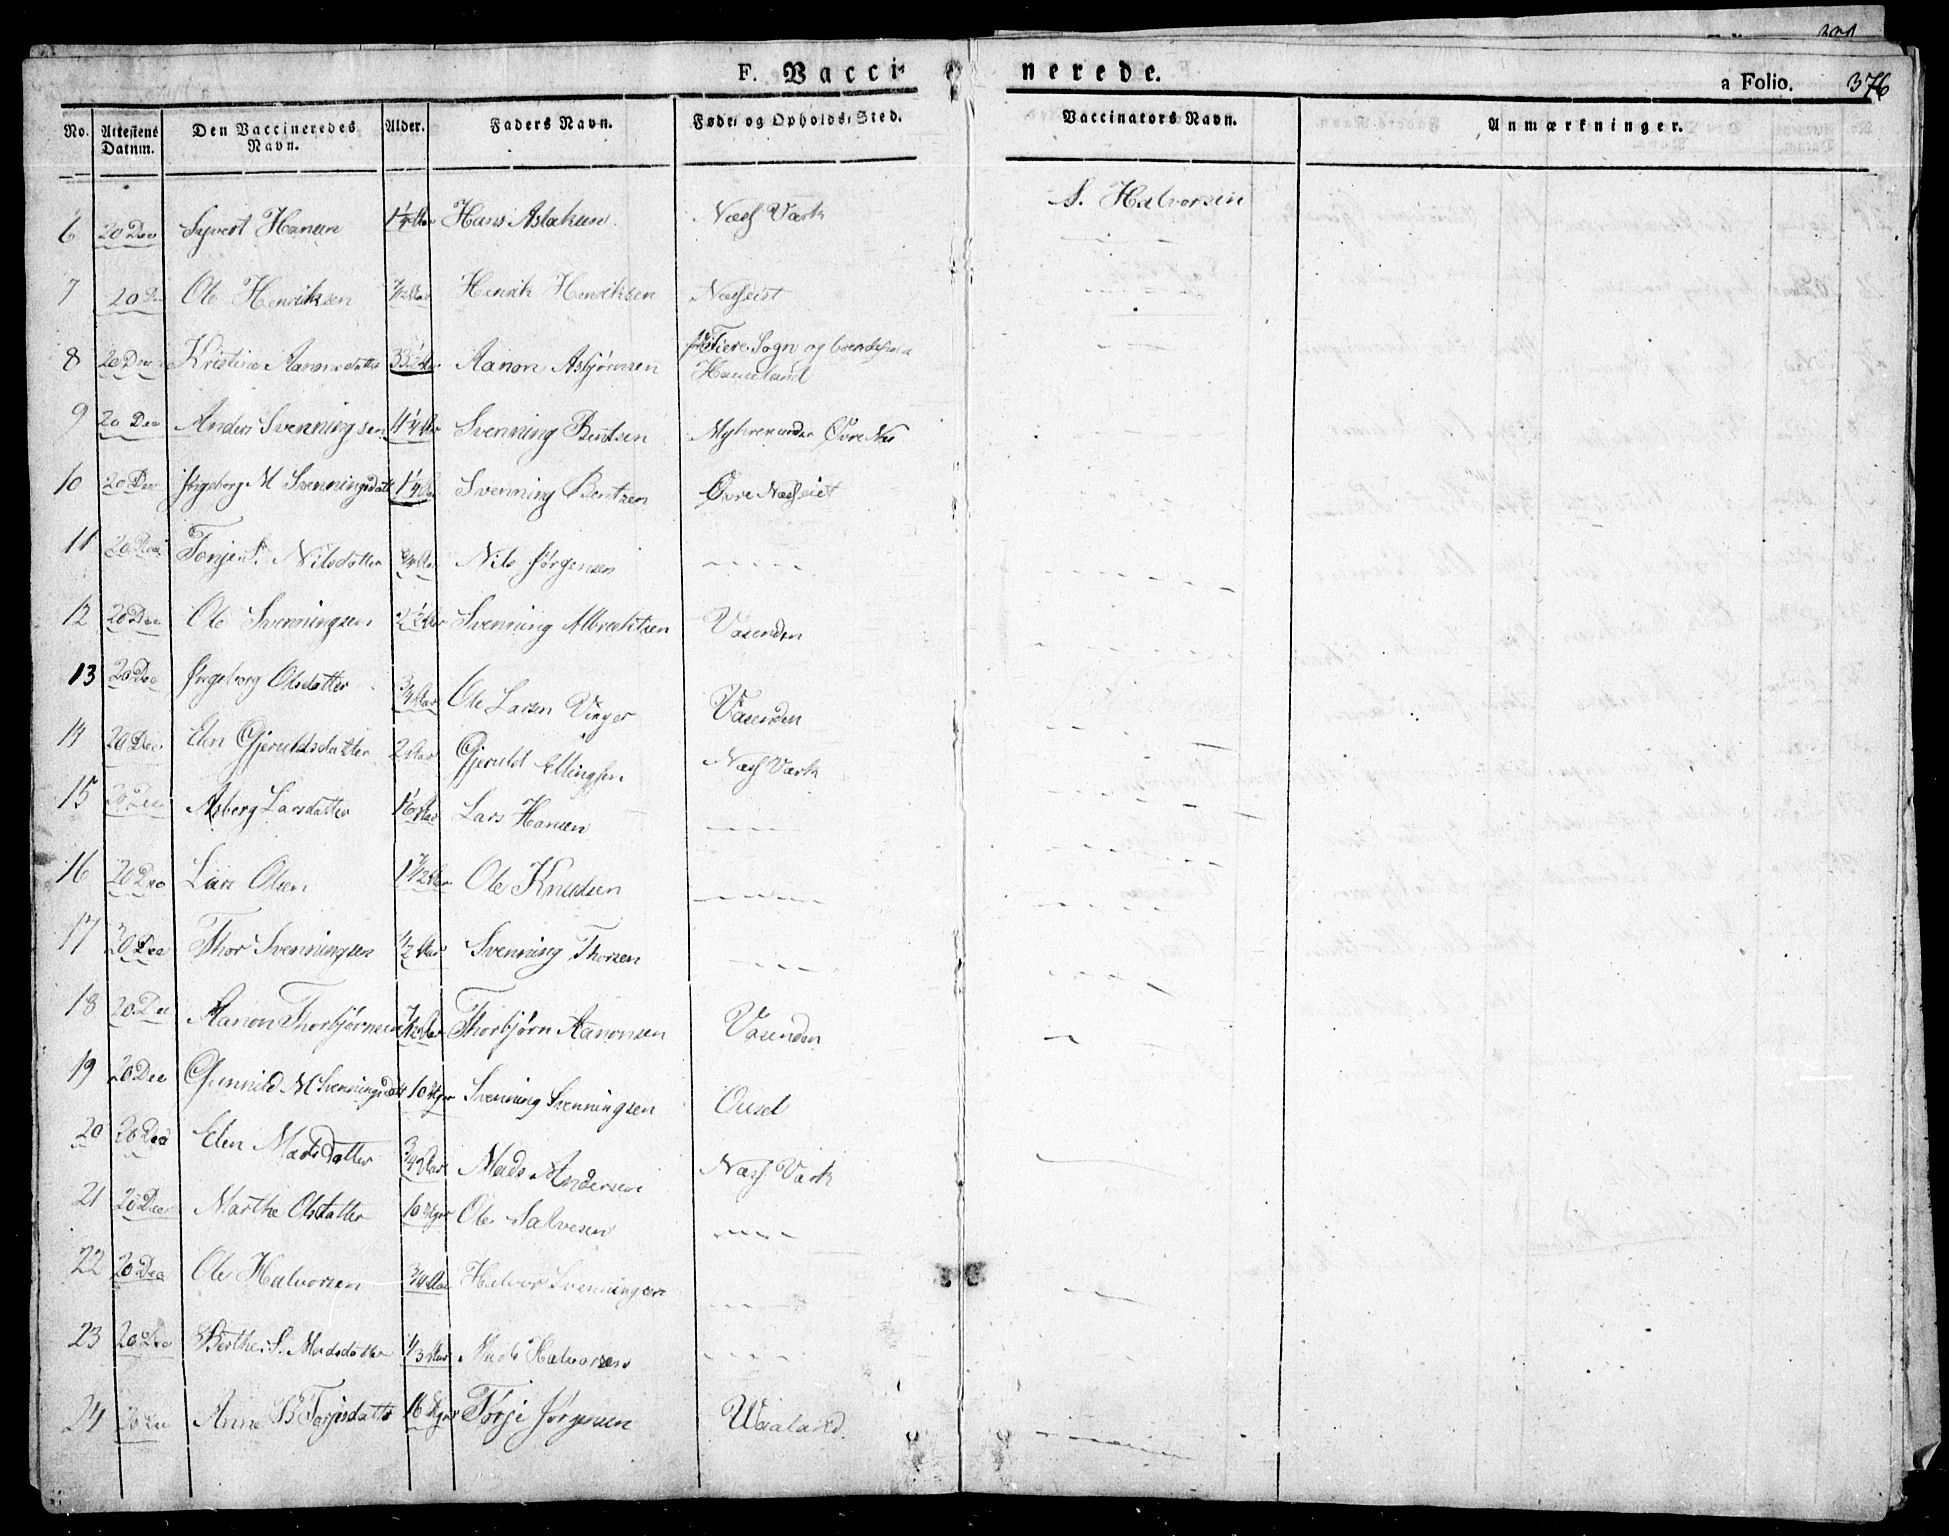 F. Vacci- nerede. a Folio. 376
No. Attestens Datum. Den Vaccineredes Navn. Alder. Faders Navn. Føde- og Opholds-Sted. Vaccinators Navn. Anmærkninger.
6 20 Dec Syvert Hansen 1 1/4 Aar Hans Aslaksen Næss Værk S. Halvorsen
7 20 De Ole Henriksen 7/12 Aar Henrik Henriksen Næsseiet
8 20 Dec Kristine Aanonsdatter Aanon Asbjørnsen Sogn og
Haueland
9 20 Dec Anders Svenningsen 4 1/4 Aar Svenning Bentsen Myhren under Øvre Næs
10 20 Dec Ingeborg M Svenningsdatt 1 1/4 Aar Svenning Bentsen Øvre Næsseiet
11 20 Dec Nilsdatter 3/4 Aar Nils Jørgensen - - - -
12 20 Dec Ole Svenningsen 2 1/2 Aar Svenning Albrechtsen Vasenden
13 20 Dec Ingeborg Olsdatter 3/4 Aar Ole Larsen Vinger Vasenden
14 20 Dec Elen Gjeruldsdatter 2 Aar Gjeruld Ellingsen Næss Værk
15 20 Dec Asberg Larsdatter Lars Hansen - - - -
16 20 Dec Lars Olsen 1 7/12 Aar Ole Knudsen - - - -
17 20 Dec Thor Svenningsen 1/2 Aar Svenning Thorsen - - - -
18 20 De Aanon Thorbjørnsen 7/12 Aar Thorbjørn Aanonsen Vasenden
19 20 Dec Gunnild M Svenningsdatt 10 Uger Svenning Svenningsen Ousel
20 20 Dec Elen Madsdatter 3/4 Aar Mads Andersen Næss Værk
21 20 Dec Marthe Olsdatter 10 Uger Ole Salvesen - - - -
22 20 Dec Ole Halvorsen 3/4 Aar Halvor Svenningsen - - - -
23 20 Dec Berthe S. Madsdatter 1/3 Aar Mads Halvorsen - - - -
24 20 Dec Anne B Torjisdatt 16 Uger Torji Jørgensen Waaland.